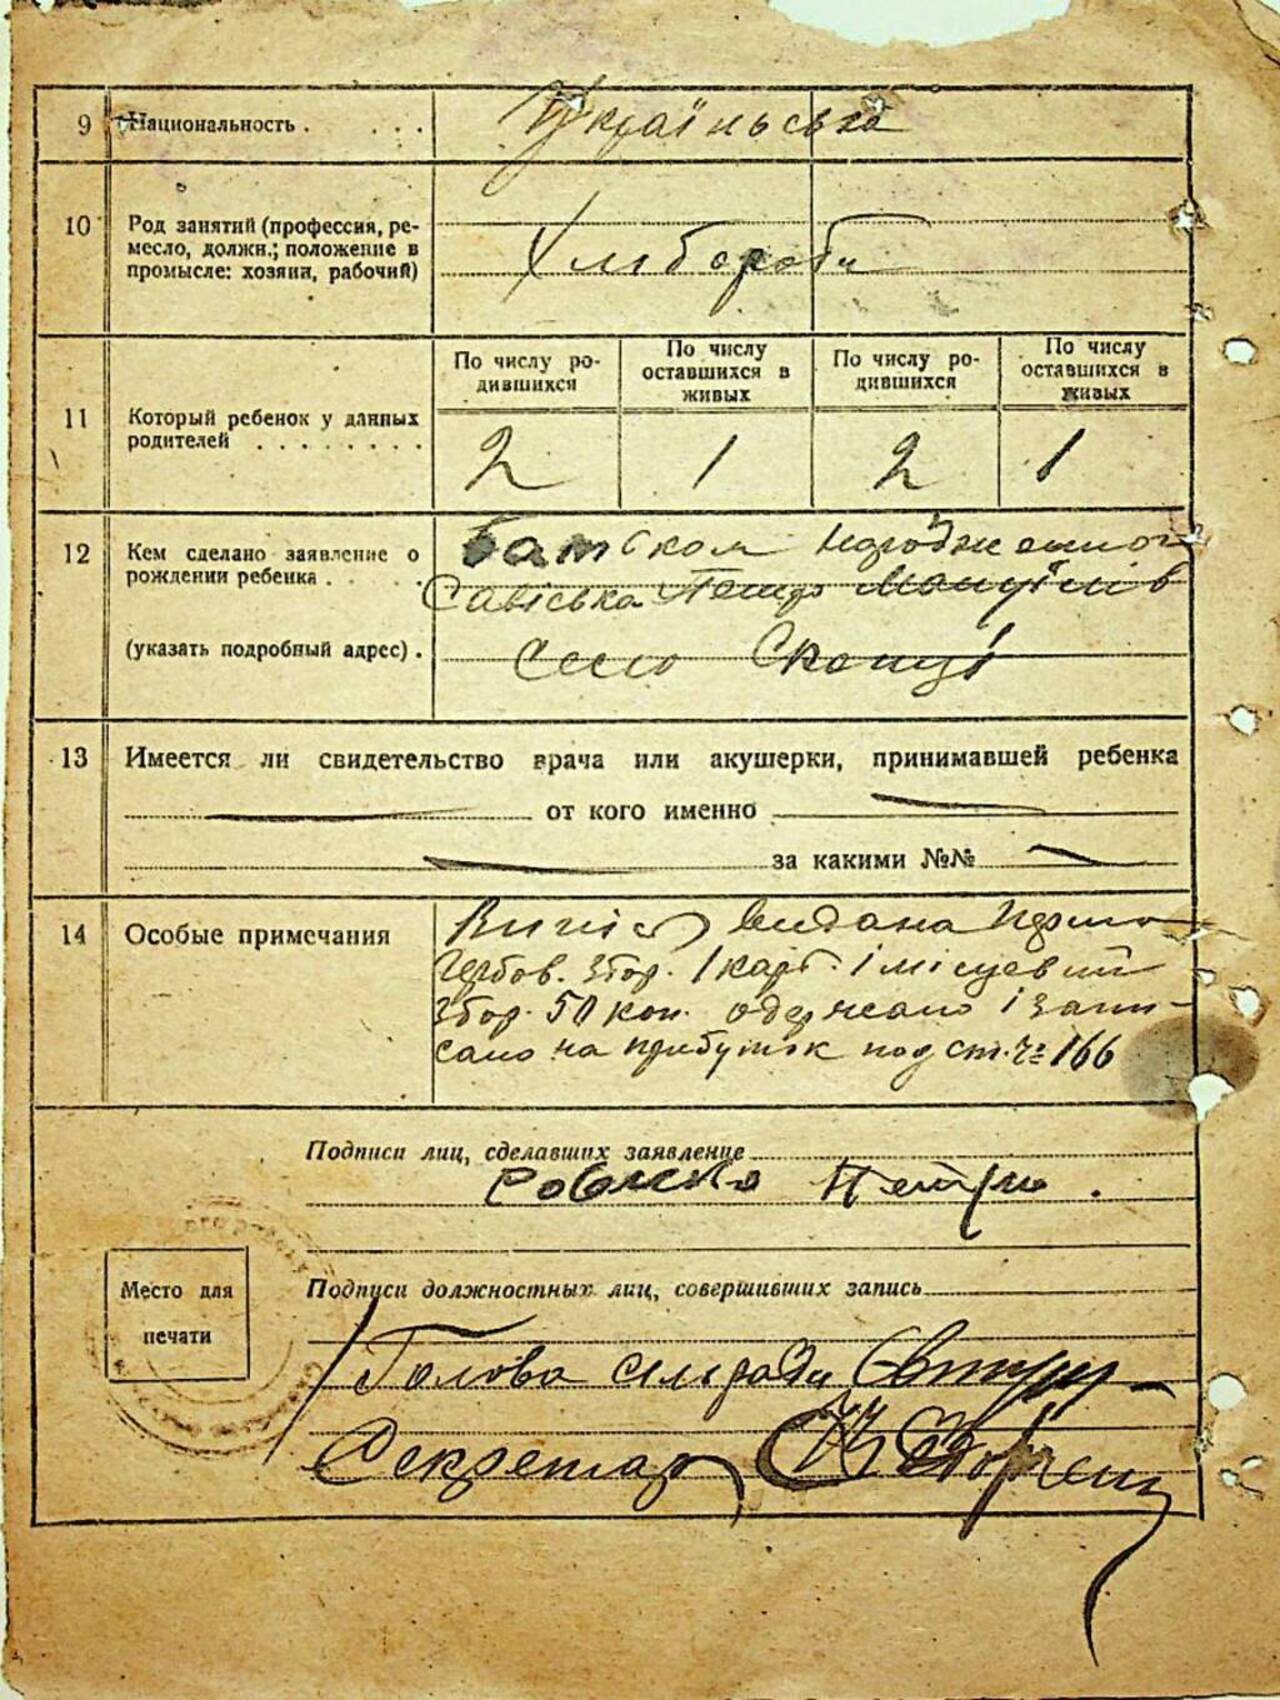 9 Национальность . . . . Українська
10 Род занятий (профессия, ре-
месло, должн.; положение в
промысле: хозяин, рабочий)
Хлібороби
По числу ро-
дившихся
По числу
оставшихся в
живых
По числу ро-
дившихся
По числу
оставшихся в
живых
11 Который ребенок у данных
родителей . . . . . . . .
2 1 2 1
12 Кем сделано заявление о
рождении ребенка . . . . .
(указать подробный адрес) .
Батьком
Петро
Село Скопці
13 Имеется ли свидетельство врача или акушерки, принимавшей ребенка
от кого именно
за какими №№
14 Особые примечания
Випис видана
Гербов. збор. 1 карб. і місцевий
збор. 50 коп. одержано і запи-
сано на прибуток под ст. ч. 166
Подписи лиц, сделавших заявление
Петро.
Подписи должностных лиц, совершивших запись
Место для
печати
Голова сільради
Секретар